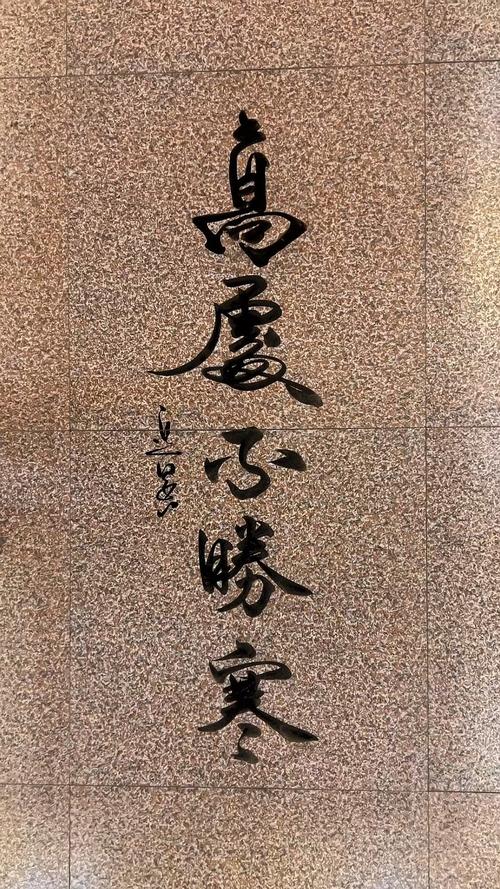 高處不勝寒